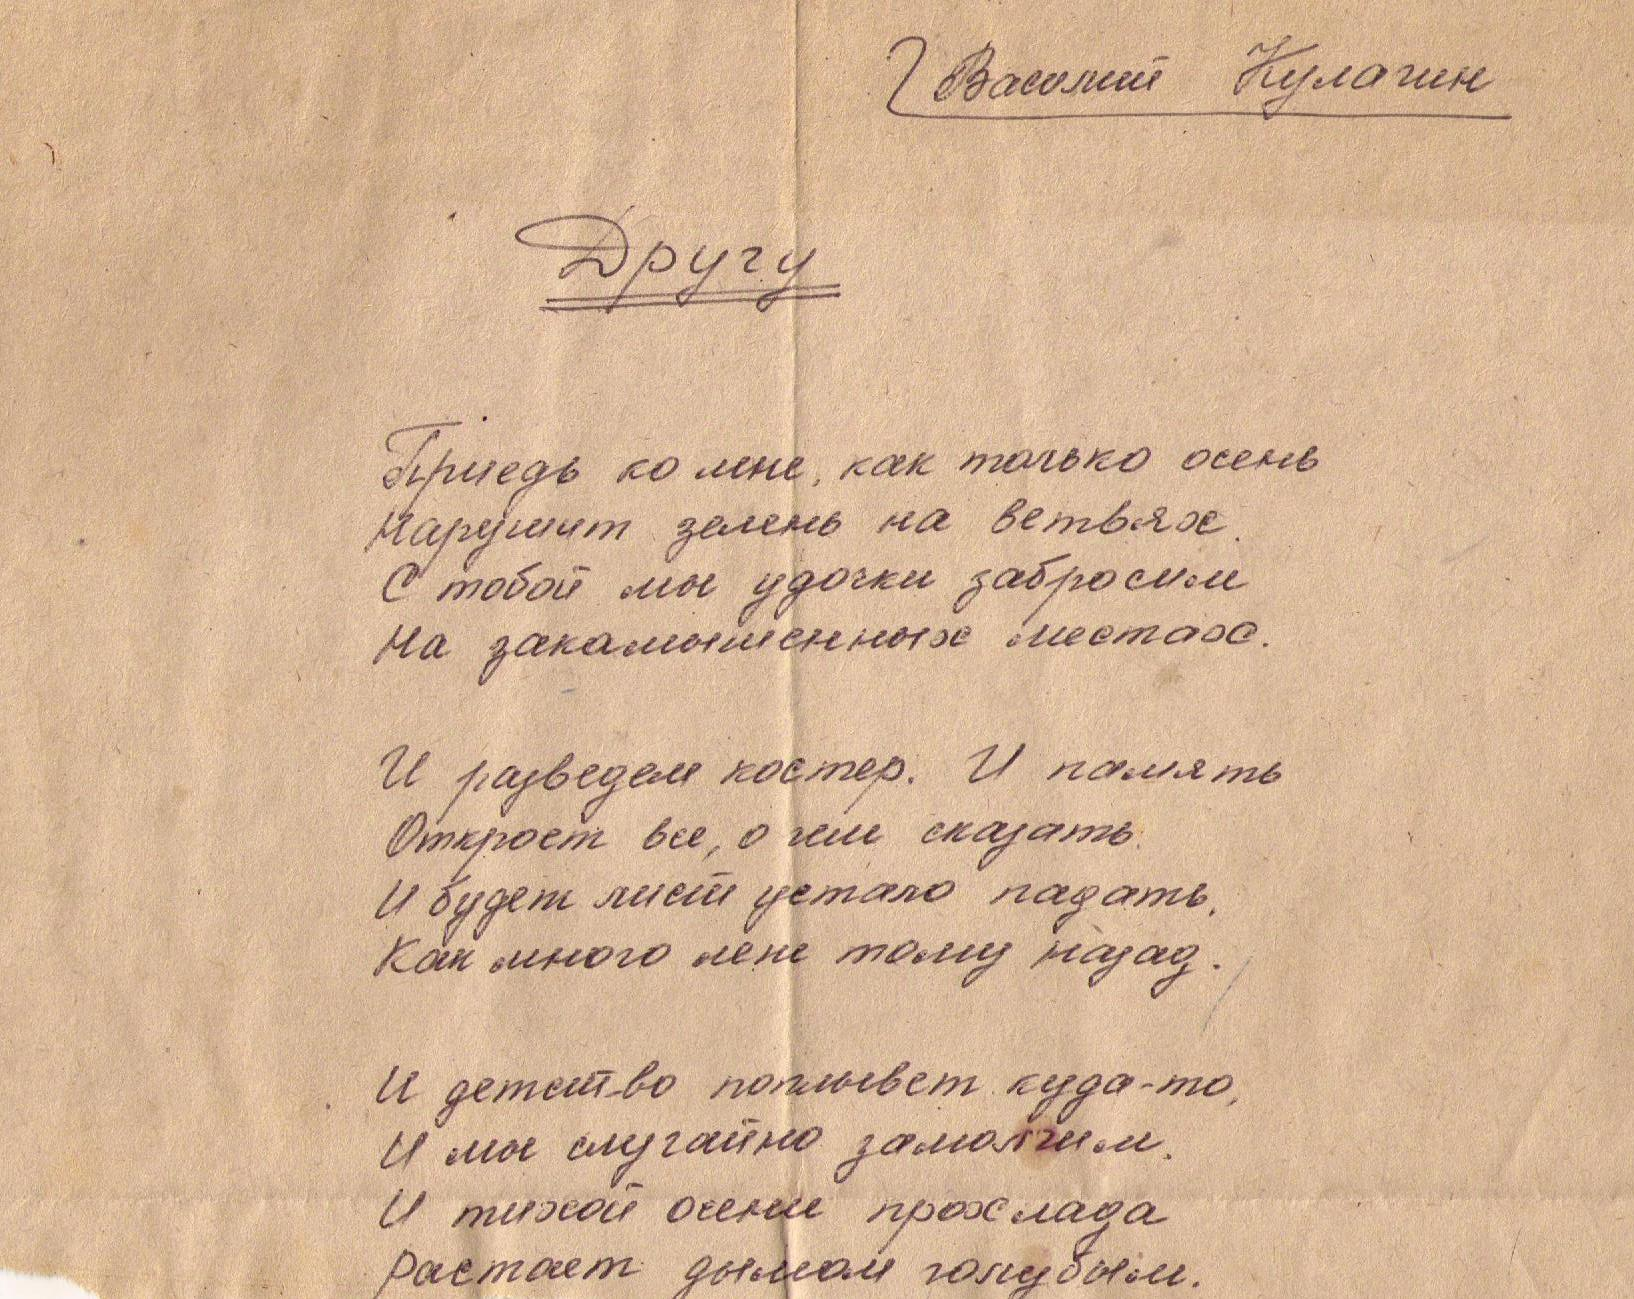 Василий Кулагин
Другу
Приедь ко мне, как только осень
Нарушит зелень на ветвях.
С тобой мы удочки забросим
На закамышенных местах.
И разведем костер. И память
Откроет все, о чем сказать.
И будет лист устало падать,
Как много лет тому назад.
И детство поплывет куда-то,
И мы случайно замолчим.
И тихой осени прохлада
Растает дымом голубым.